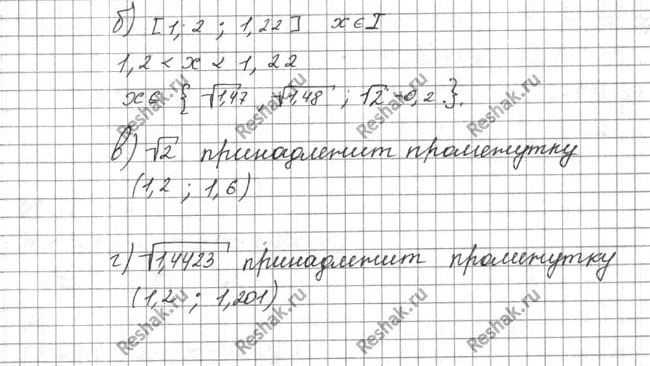 б) [1,2 ; 1,22] x∈I
1,2 < x < 1,22
x∈ { √1,47 , √1,48 ; √2 -0,2.}.
в) √2 принадлежит промежутку
(1,2 ; 1,6)
г) √1,4423 принадлежит промежутку
(1,2 ; 1,201)
Reshak.ru
Reshak.ru
Reshak.ru
Reshak.ru
Reshak.ru
Reshak.ru
Reshak.ru
Reshak.ru